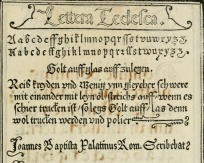 Lettera Tedesca.
Aabcdefghiklmnopqrſstvuwxyz
Aabcdefghiklmnopqrſstvuwxyz
Golt auff glas auff zulegen.
Reib kreyden und Meniy ym gleycher schwere
mit einander mit leynöl streichs auff wenn es
schier trucken ist so leg Golt auff las denn
wol trucken werden und polier
Joannes Baptista Palatinus Rom. Scribebat